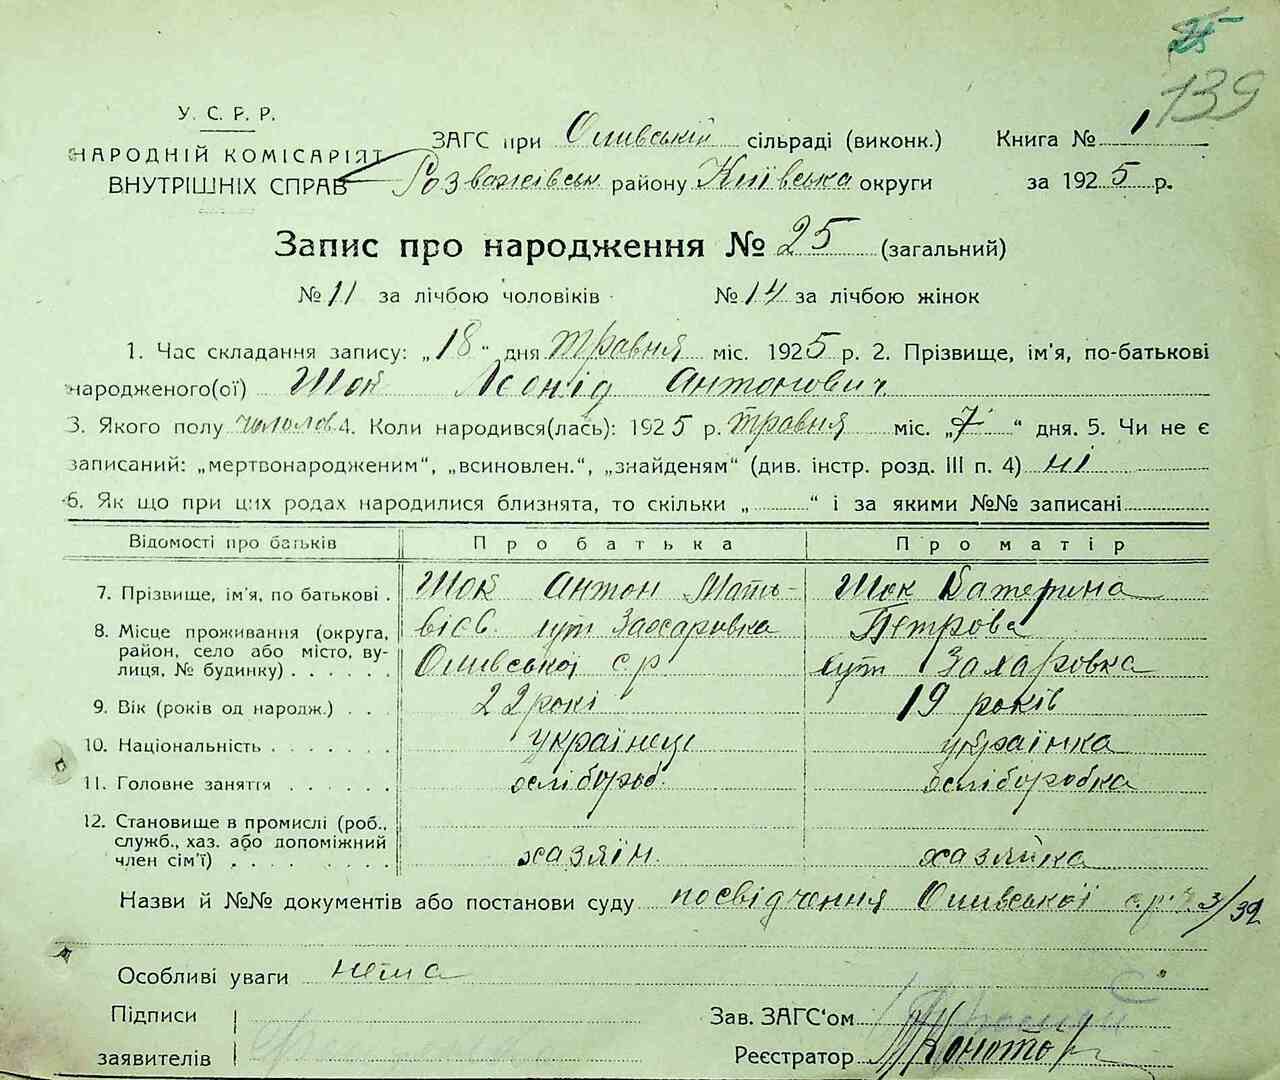 25
139
У. С. Р. Р.
НАРОДНІЙ КОМІСАРІЯТ
ВНУТРІШНІХ СПРАВ
ЗАГС при Оливській сільраді (виконк.) Книга № 1
Розважівськ району Київська округи за 1925 р.
Запис про народження № 25 (загальний)
№ 11 за лічбою чоловіків № 14 за лічбою жінок
1. Час складання запису: „18“ дня травня міс. 1925 р. 2. Прізвище, ім'я, по-батькові
народженого(ої) Шок Леонід Антонович
3. Якого полу чолов 4. Коли народився(лась): 1925 р. травня міс. „7“ дня. 5. Чи не є
записаний: „мертвонародженим“, „всиновлен.“, „знайденям“ (див. інстр. розд. III п. 4) ні
6. Як що при цих родах народилися близнята, то скільки „......“ і за якими №№ записані
Відомості про батьків Про батька Про матір
7. Прізвище, ім'я, по батькові . Шок Антон Мать- Шок Катерина
8. Місце проживання (округа, вієв. хут Захаровка Петрова
район, село або місто, ву-
лиця, № будинку) . . . . . . Оливської с.р хут Захаровка
9. Вік (років од народж.) . . 22 рокі 19 років
10. Національність . . . . . . . українець українка
11. Головне заняття . . . . . . хлібороб. хліборобка
12. Становище в промислі (роб.,
служб., хаз. або допоміжний
член сім'ї) . . . . . . . . . хазяїн. хазяйка
Назви й №№ документів або постанови суду посвідчення Оливської с.р. ч. 3/39
Особливі уваги нема
Підписи Зав. ЗАГС'ом
заявителів Реєстратор